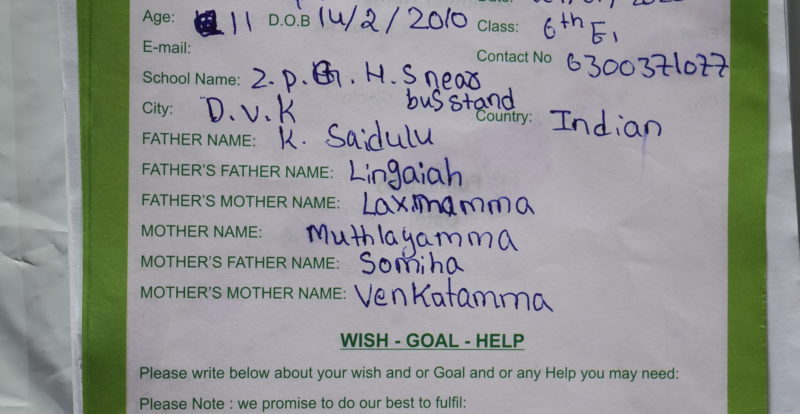 Age: 11 D.O.B 14/2/2010 Class: 6th E1
E-mail: Contact No 6300371077
School Name: Z.P.G.H.S near
bus stand
City: D.V.K Country: Indian
FATHER NAME: K. Saidulu
FATHER'S FATHER NAME: Lingaiah
FATHER'S MOTHER NAME: Laxmamma
MOTHER NAME: Muthlayamma
MOTHER'S FATHER NAME: Somiha
MOTHER'S MOTHER NAME: Venkatamma
WISH - GOAL - HELP
Please write below about your wish and or Goal and or any Help you may need:
Please Note : we promise to do our best to fulfil: